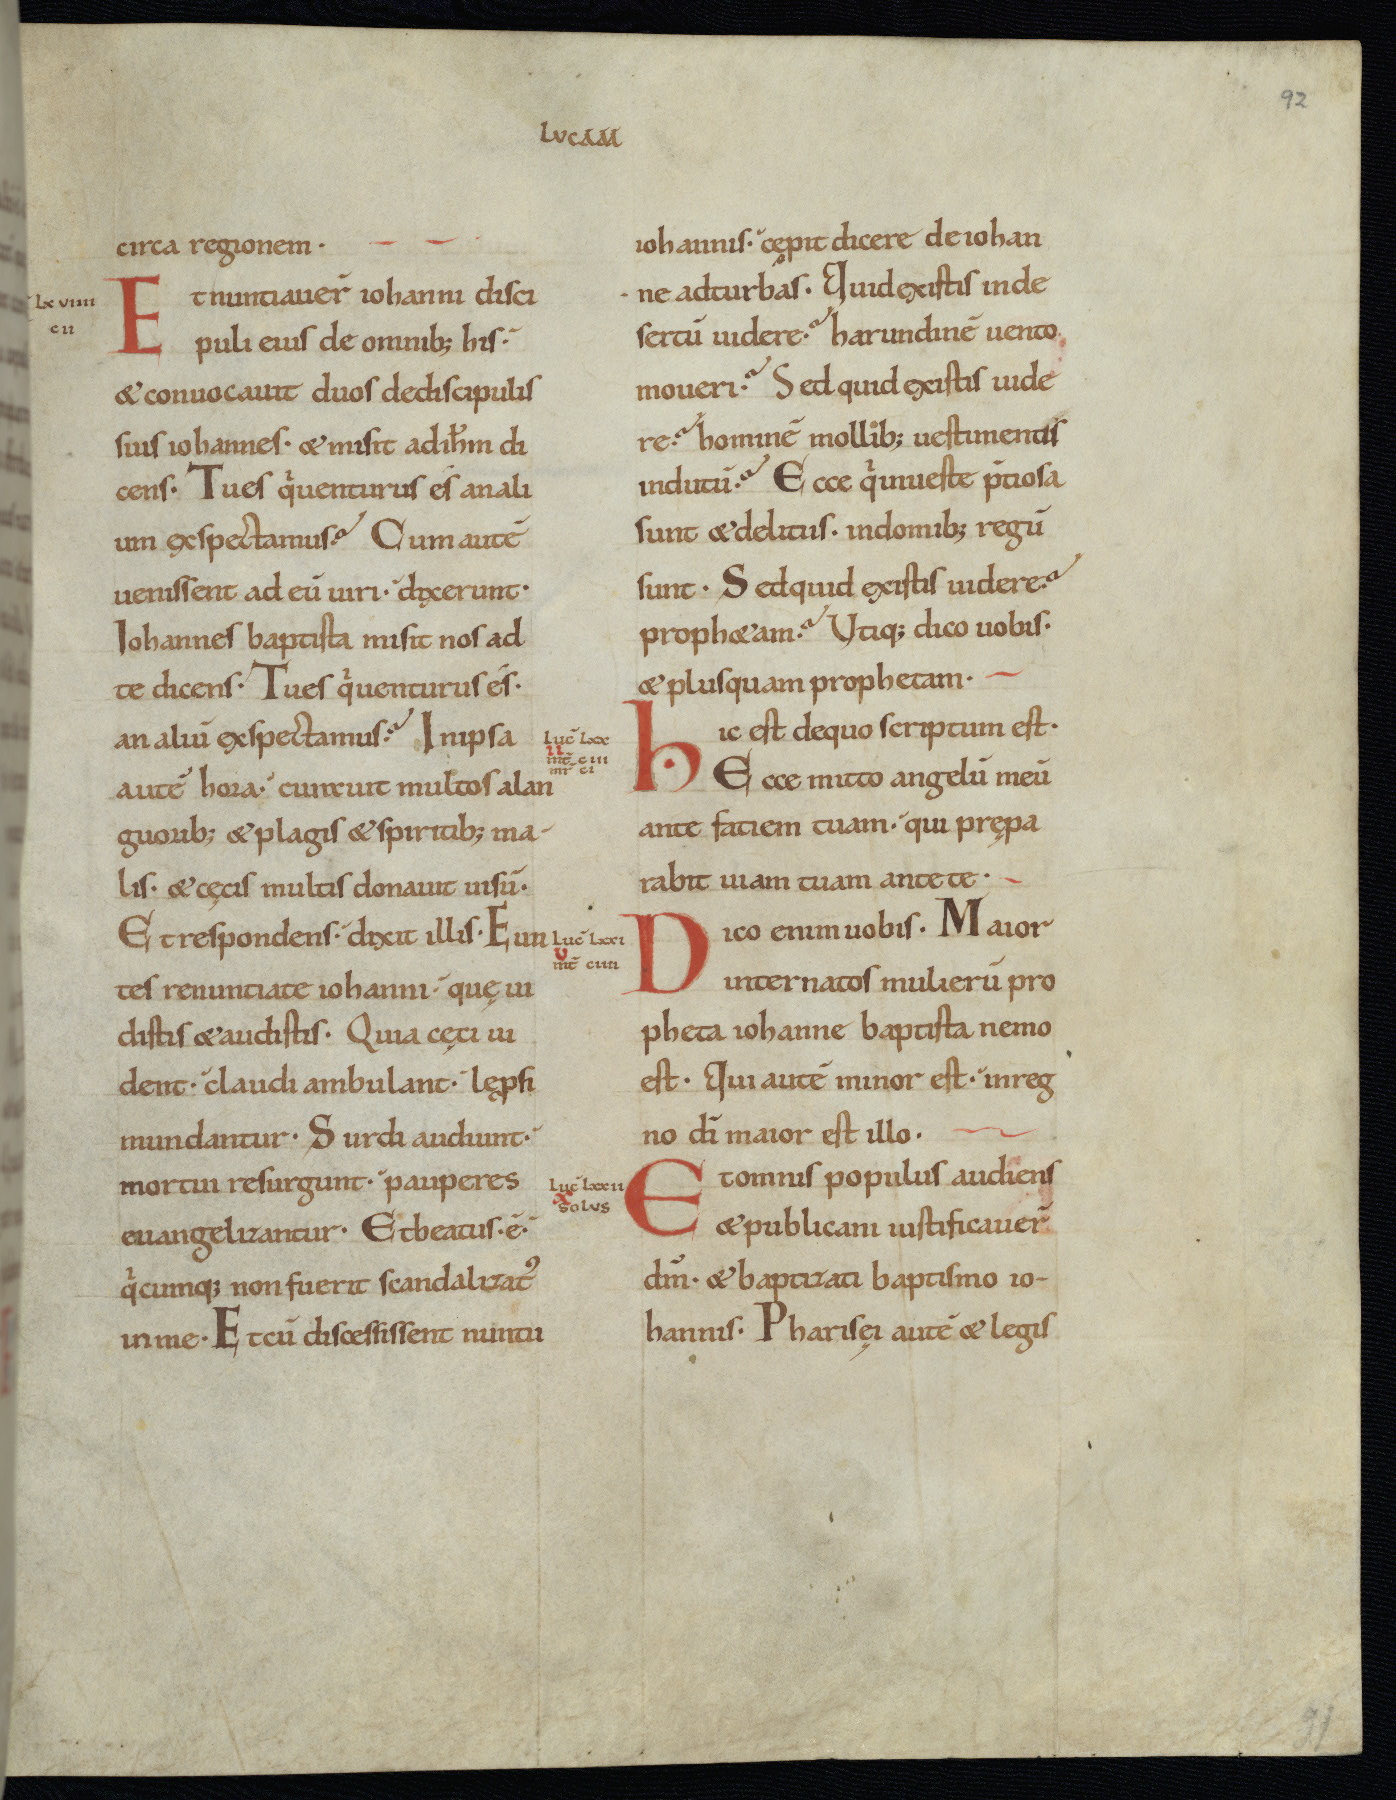 92
LVCAM
circa regionem·
Lxviiii
cii
Et nuntiauer̄ iohanni disci
puli eius de omnib; his·
& conuocauit duos dediscipulis
suis iohannes· & misit ad ih̄m di
cens· Tu es q̇uenturus es an ali
um exspectamus? Cum autē
uenissent ad eū uiri· dixerunt·
Iohannes baptista misit nos ad
te dicens· Tu es q̇uenturus es·
an aliū exspectamus? In ipsa
autē hora· curauit multos a lan
guorib; & plagis & spiritib; ma-
lis· & cęcis multis donauit uisū·
Et respondens· dixit illis· Eun
tes renuntiate iohanni· quę ui
distis & audistis· Quia cęci ui
dent· claudi ambulant· lepsi
mundantur· Surdi audiunt·
mortui resurgunt· pauperes
euangelizantur· Et beatus·ē·
q̇cumq; non fuerit scandalizat᾿
in me· Et cū discessissent nuntii
iohannis· cępit dicere de iohan
ne ad turbas· Quid existis in de
sertū uidere? harundinē uento
moueri? Sed quid existis uide
re? hominē mollib; uestimentis
indutū? Ecce q̇ in ueste p̄tiosa
sunt & delitiis· in domib; regū
sunt· Sed quid existis uidere?
proph&am? Vtiq; dico uobis·
& plus quam prophetam·
Luc̄ Lxx
ii
mt̄ ciii
mr̄ ci
hic est de quo scriptum est·
Ecce mitto angelū meū
ante faciem tuam· qui prępa
rabit uiam tuam ante te·
Luc̄ Lxxi
v
mt̄ ciiii
Dico enim uobis· Maior
inter natos mulierū pro
pheta iohanne baptista nemo
est· Qui autē minor est· in reg
no dī maior est illo·
Luc̄ Lxxii
x
solus
Et omnis populus audiens
& publicani iustificauer̄
dm̄· & baptizati baptismo io-
hannis· Pharisęi autē & legis
91